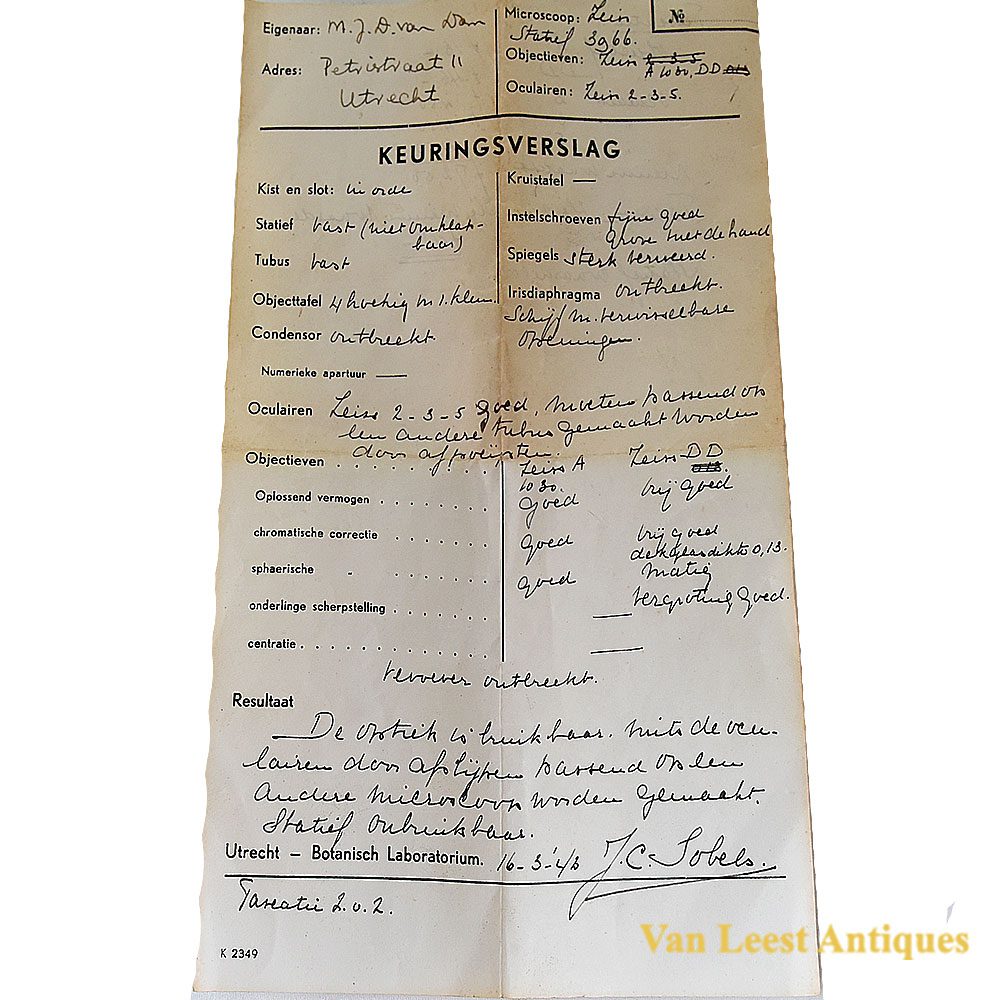 Eigenaar: M. J. D. van Dam
Adres: Petristraat 11
Utrecht
Microscoop: Zeiss
Statief 3966.
Objectieven: Zeiss 2-3-5
A 1030, DD
Oculairen: Zeiss 2-3-5.
№
KEURINGSVERSLAG
Kist en slot: in orde
Statief vast (niet omklap-
baar)
Tubus vast
Objecttafel 4 hoekig m 1. klem.
Condensor ontbreekt
Numerieke apartuur —
Kruistafel —
Instelschroeven fijne goed
grove met de hand
Spiegels sterk verweerd.
Irisdiaphragma ontbreekt.
Schijf m. verwisselbare
openingen.
Oculairen Zeiss 2-3-5 goed, moeten passend op
een andere tubus gemaakt worden
door afslijpen.
Objectieven . . . . . . . . Zeiss A Zeiss DD
1030.
Oplossend vermogen . . . . . . . goed vrij goed
chromatische correctie . . . . . . goed vrij goed
dekglasdikte 0,13.
sphaerische „ . . . . . . goed matig
vergroting goed.
onderlinge scherpstelling . . . . . . —
centratie . . . . . . . . . . —
revolver ontbreekt.
Resultaat
De optiek is bruikbaar. mits de ocu-
lairen door afslijpen passend op een
andere microscoop worden gemaakt.
Statief onbruikbaar.
Utrecht – Botanisch Laboratorium. 16-3-'43 J.C. Sobels.
Taxatie z.o.z.
K 2349
Van Leest Antiques